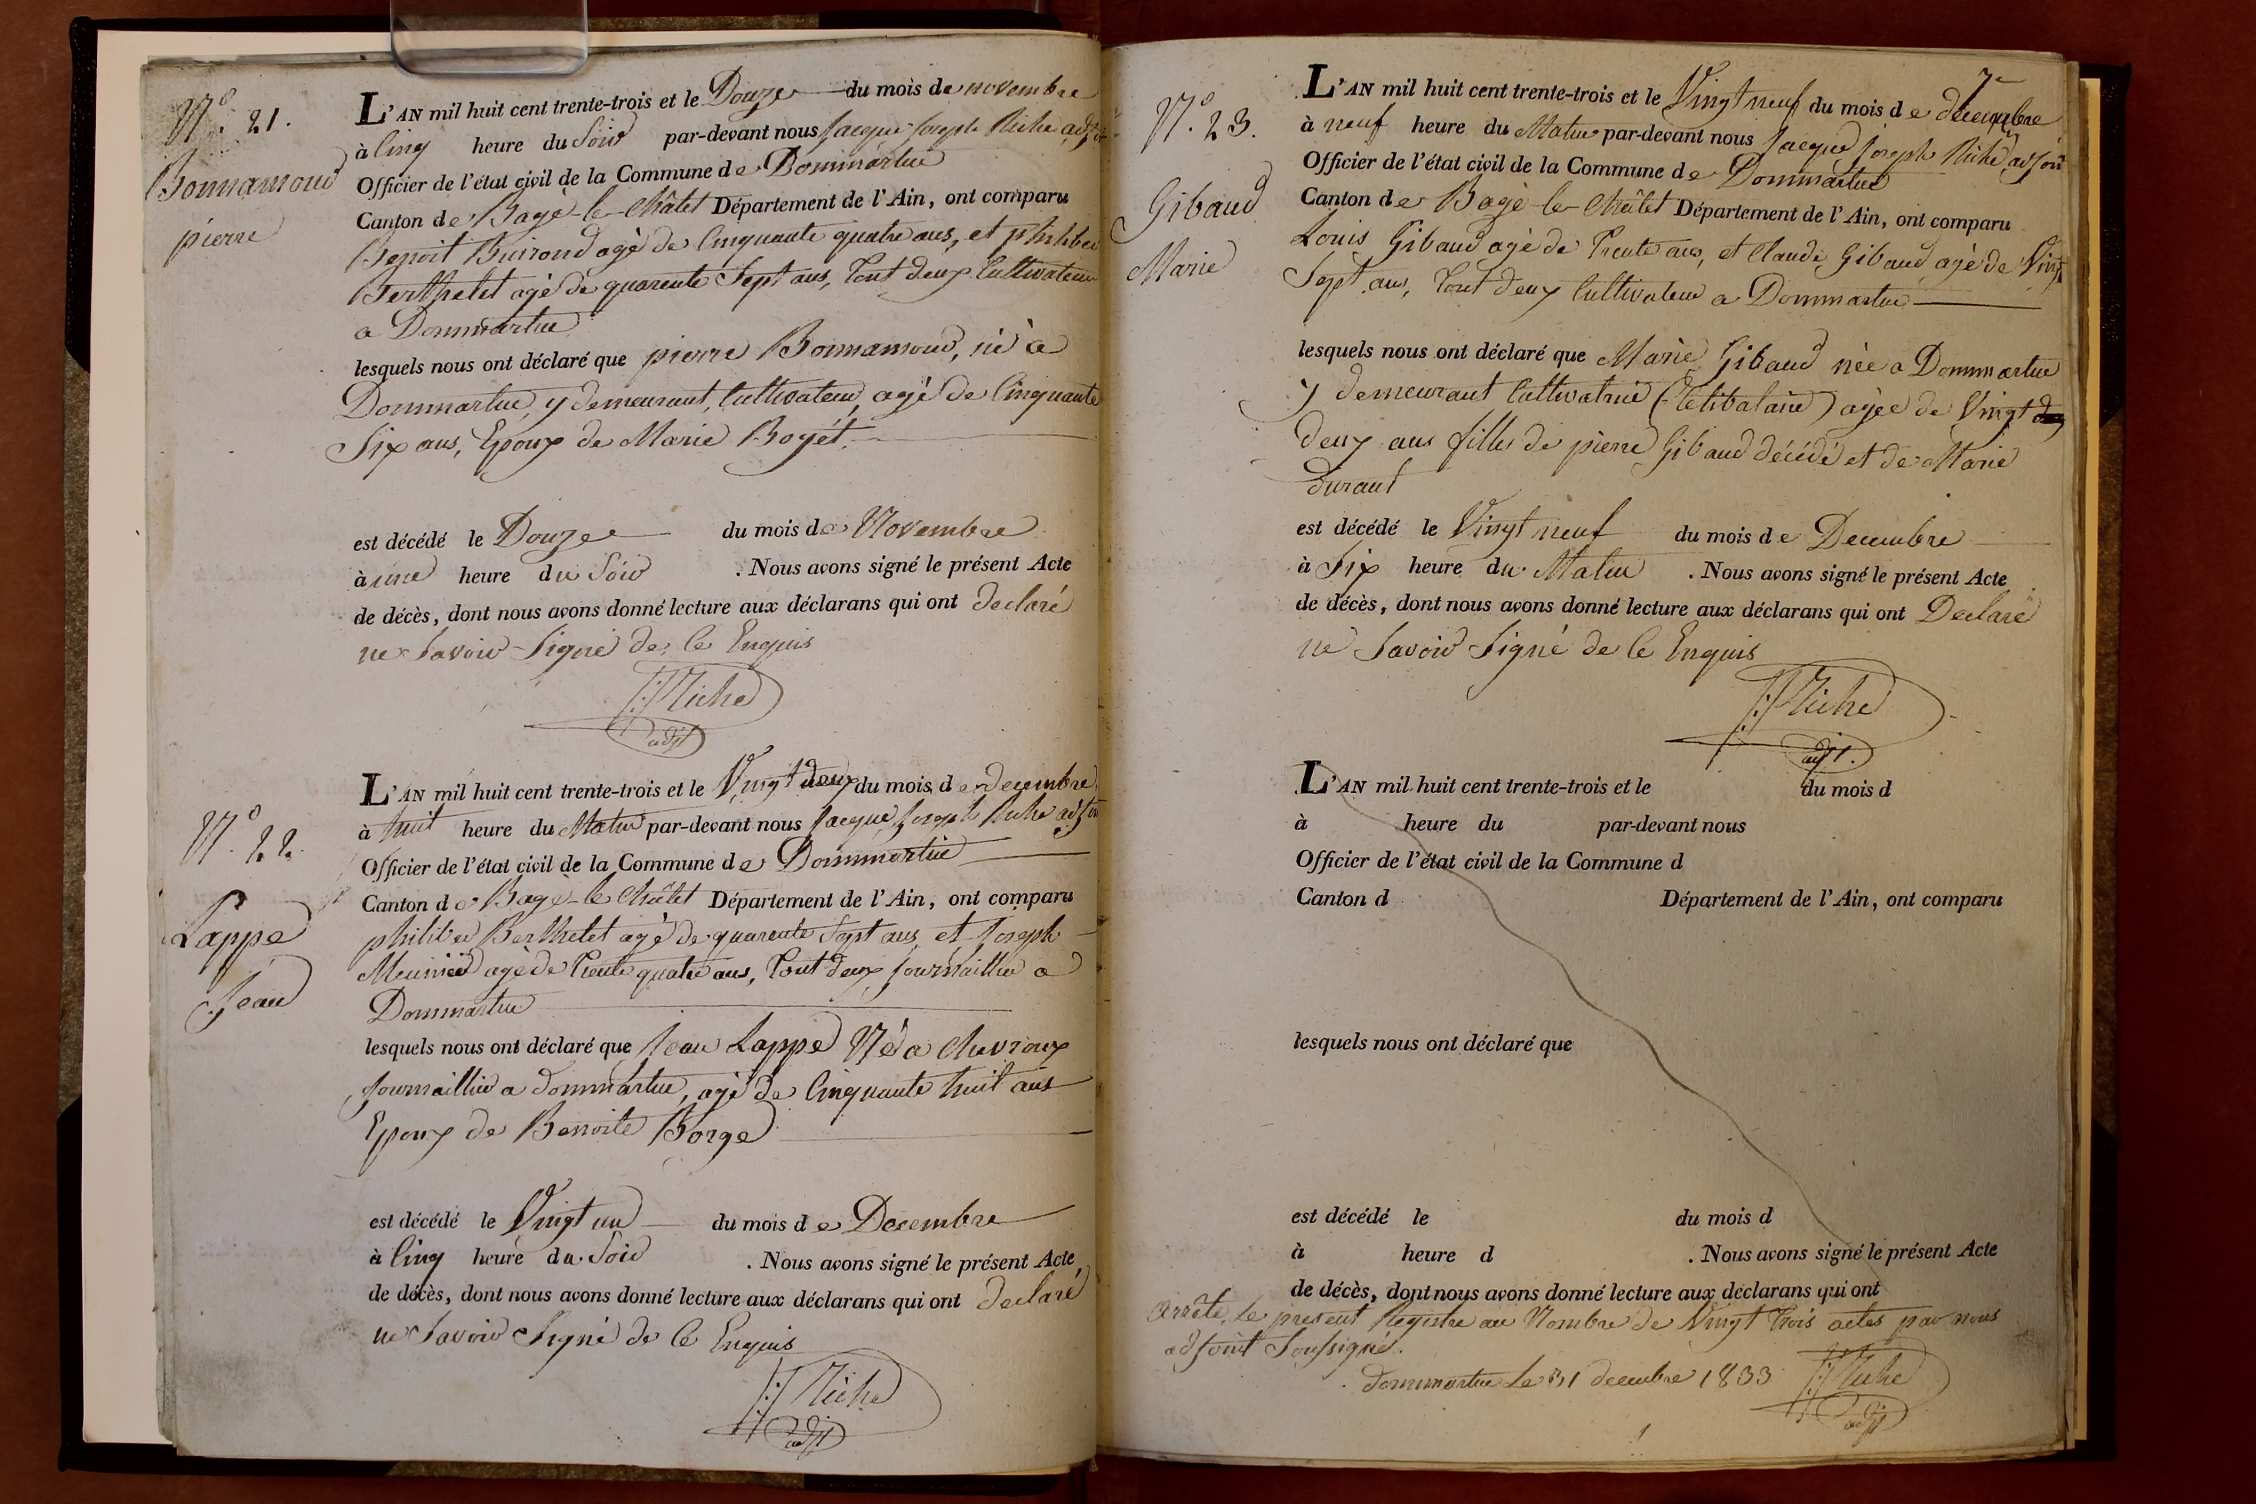 N.° 21.
Bonnamoud
pierre
L'AN mil huit cent trente-trois et le Douze du mois de novembre
à Cinq heure du Soir par-devant nous Jacque Joseph Riche adjoin
Officier de l'état civil de la Commune de Dommartin
Canton de Bagé-le-Châtel Département de l'Ain, ont comparu
Benoit Buiron agé de Cinquante quatre ans, et philiber
Berthelet agé de quarente Sept ans, tout deux Cultivateur
a Dommartin
lesquels nous ont déclaré que pierre Bonnamoud, né à
Dommartin, y demeurant, Cultivateur, agé de Cinquante
Six ans, Epoux de Marie Boyét.
est décédé le Douze du mois de Novembre
à une heure du Soir . Nous avons signé le présent Acte
de décès, dont nous avons donné lecture aux déclarans qui ont declaré
ne Savoir Signé de Ce Enquis
J: J: Riche
adjt
N.° 22.
Lappe
Jean
L'AN mil huit cent trente-trois et le Vingt deux du mois de decembre
à huit heure du Matin par-devant nous Jacque Joseph Riche adjoin
Officier de l'état civil de la Commune de Dommartin
Canton de Bagé-le-Châtel Département de l'Ain, ont comparu
philiber Berthelet agé de quarente Sept ans, et Joseph
Meunier agé de Trente quatre ans, tout deux Journaillier a
Dommartin
lesquels nous ont déclaré que Jean Lappe Né a Chevroux
Journaillier a dommartin, agé de Cinquante huit ans
Epoux de Benoite Borge
est décédé le Vingt un du mois de Decembre
à Cinq heure du Soir . Nous avons signé le présent Acte,
de décès, dont nous avons donné lecture aux déclarans qui ont declaré
ne Savoir Signé de Ce Enquis
J: J: Riche
adjt
N.° 23.
Gibaud
Marie
L'AN mil huit cent trente-trois et le Vingt neuf du mois de decembre
à neuf heure du Matin par-devant nous Jacque Joseph Riche adjoin
Officier de l'état civil de la Commune de Dommartin
Canton de Bagé-le-Châtel Département de l'Ain, ont comparu
Louis Gibaud agé de Trente ans, et Claude Gibaud agé de Vingt
Sept ans, tout deux Cultivateur a Dommartin
lesquels nous ont déclaré que Marie Gibaud née a Dommartin
y demeurant Cultivatrice (Celibataire) agée de Vingt
deux ans filles de pierre Gibaud décédé et de Marie
durant
est décédé le Vingt neuf du mois de Decembre
à Six heure du Matin . Nous avons signé le présent Acte
de décès, dont nous avons donné lecture aux déclarans qui ont Declaré
ne Savoir Signé de Ce Enquis
J: J: Riche
adjt.
L'AN mil huit cent trente-trois et le du mois d
à heure du par-devant nous
Officier de l'état civil de la Commune d
Canton d Département de l'Ain, ont comparu
lesquels nous ont déclaré que
est décédé le du mois d
à heure d . Nous avons signé le présent Acte
de décès, dont nous avons donné lecture aux déclarans qui ont
Arrêté, le present Registre au Nombre de Vingt Trois actes par nous
adjoint Soussigné.
dommartin le 31 decembre 1833
J: J: Riche
adjt